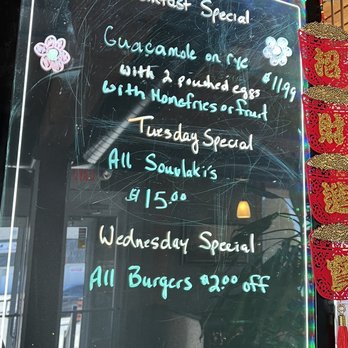 Breakfast Special
Guacamole on rye
with 2 pouched eggs
$11.99
with Homefries or fruit
Tuesday Special
All Souvlaki's
$15.00
Wednesday Special
All Burgers $2.00 off
招
財
進